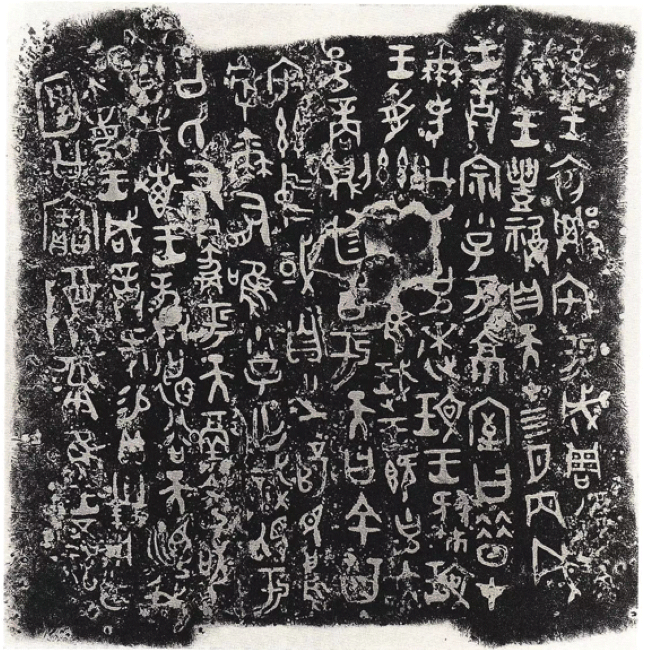 隹王初遷宅于成周復爯
珷王豊祼自天才四月丙戌
王誥宗小子于京室曰昔才
爾考公氏克逨玟王肆玟
王受茲隹珷王既克大
邑商則廷告于天曰余其
宅茲中或自之乂民烏
虖爾有唯小子亡識視于
公氏有爵于天徹令敬
享哉叀王龏德谷天順我
不敏王咸誥何易貝卅朋用乍
公寶尊彝隹王五祀